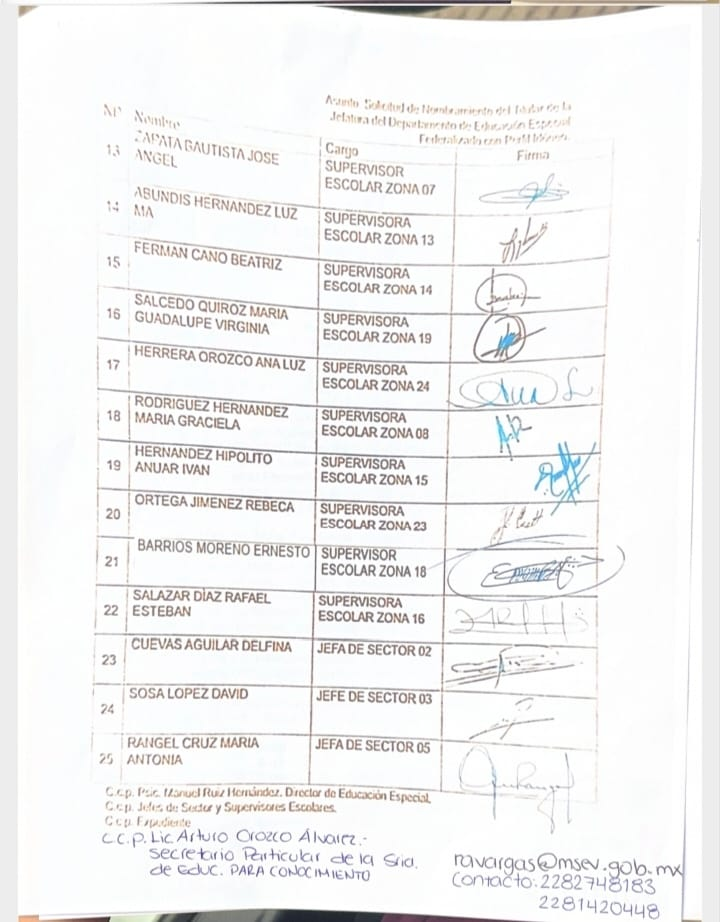 Asunto: Solicitud de Nombramiento del Titular de la
Jefatura del Departamento de Educación Especial
Federalizado con Perfil Idóneo.
Nº Nombre Cargo Firma
13 ZAPATA BAUTISTA JOSE SUPERVISOR
ANGEL ESCOLAR ZONA 07
14 ABUNDIS HERNANDEZ LUZ SUPERVISORA
MA ESCOLAR ZONA 13
15 FERMAN CANO BEATRIZ SUPERVISORA
ESCOLAR ZONA 14
16 SALCEDO QUIROZ MARIA SUPERVISORA
GUADALUPE VIRGINIA ESCOLAR ZONA 19
17 HERRERA OROZCO ANA LUZ SUPERVISORA
ESCOLAR ZONA 24
18 RODRIGUEZ HERNANDEZ SUPERVISORA
MARIA GRACIELA ESCOLAR ZONA 08
19 HERNANDEZ HIPOLITO SUPERVISORA
ANUAR IVAN ESCOLAR ZONA 15
20 ORTEGA JIMENEZ REBECA SUPERVISORA
ESCOLAR ZONA 23
21 BARRIOS MORENO ERNESTO SUPERVISOR
ESCOLAR ZONA 18
22 SALAZAR DÍAZ RAFAEL SUPERVISORA
ESTEBAN ESCOLAR ZONA 16
23 CUEVAS AGUILAR DELFINA JEFA DE SECTOR 02
24 SOSA LOPEZ DAVID JEFE DE SECTOR 03
25 RANGEL CRUZ MARIA JEFA DE SECTOR 05
ANTONIA
C.c.p. Psic. Manuel Ruiz Hernández. Director de Educación Especial.
C.c.p. Jefes de Sector y Supervisores Escolares.
C.c.p. Expediente
C.C.P. Lic Arturo Orozco Álvarez.-
Secretario Particular de la Sria.
de Educ. PARA CONOCIMIENTO
ravargas@msev.gob.mx
Contacto: 2282748183
2281420448